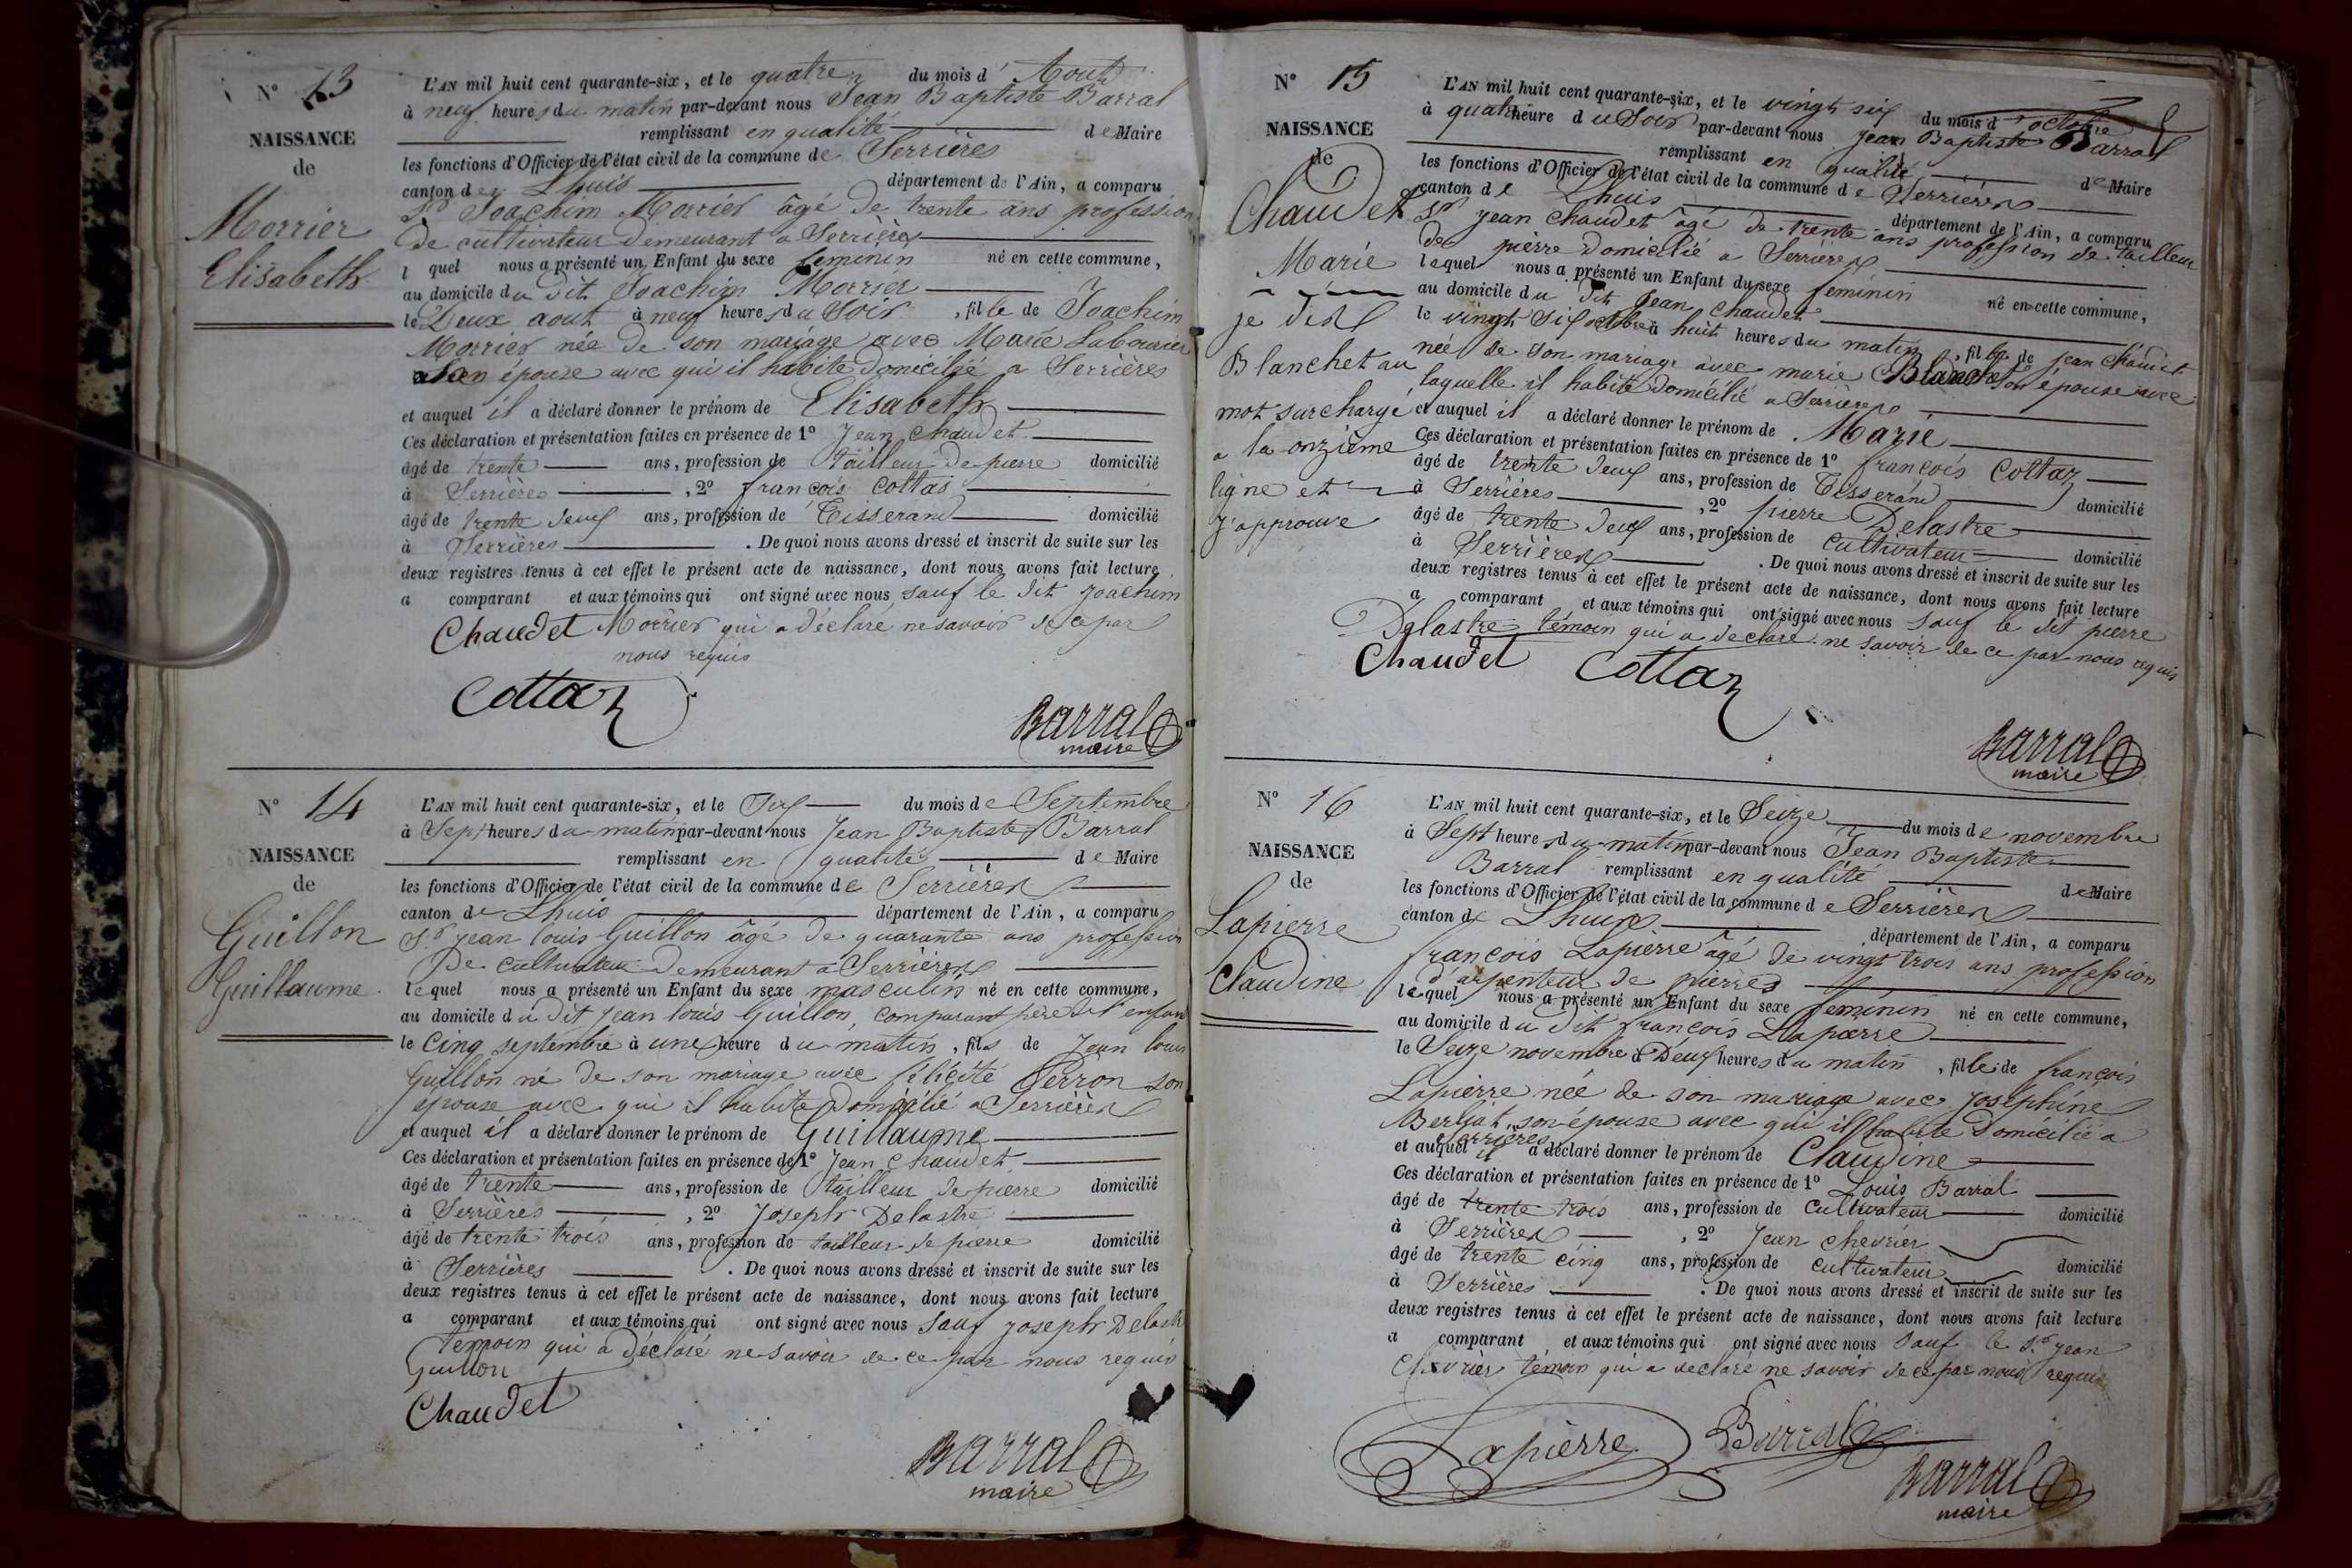 N° 13
NAISSANCE
de
Morrier
Elisabeth
L'AN mil huit cent quarante-six, et le quatre du mois d'Aout
à neuf heures du matin par-devant nous Jean Baptiste Barral
remplissant en qualité de Maire
les fonctions d'Officier de l'état civil de la commune de Serrières
canton de Lhuis département de l'Ain, a comparu
Sr Joachim Morrier âgé de trente ans profession
de cultivateur demeurant a Serrières
l quel nous a présenté un Enfant du sexe feminin né en cette commune,
au domicile du dit Joachim Morrier
le Deux aout à neuf heures du Soir, fille de Joachim
Morrier née de son mariage avec Marie Labourier
son épouse avec qui il habite domicilié a Serrières
et auquel il a déclaré donner le prénom de Elisabeth
Ces déclaration et présentation faites en présence de 1° Jean Chaudet
âgé de trente ans, profession de tailleur de pierre domicilié
à Serrières, 2° françois Cottas
âgé de trente deux ans, profession de Tisserand domicilié
à Serrières. De quoi nous avons dressé et inscrit de suite sur les
deux registres tenus à cet effet le présent acte de naissance, dont nous avons fait lecture
a comparant et aux témoins qui ont signé avec nous sauf le dit Joachim
Chaudet Morrier qui a déclaré ne savoir de ce par
nous requis
Cottaz
Barral
maire
N° 14
NAISSANCE
de
Guillon
Guillaume
L'AN mil huit cent quarante-six, et le Six du mois de Septembre
à Sept heures du matin par-devant nous Jean Baptiste Barral
remplissant en qualité de Maire
les fonctions d'Officier de l'état civil de la commune de Serrières
canton de Lhuis département de l'Ain, a comparu
Sr Jean louis Guillon âgé de quarante ans profession
De cultivateur demeurant a Serrières
lequel nous a présenté un Enfant du sexe masculin né en cette commune,
au domicile du dit Jean louis Guillon, comparant père dit enfan
le Cinq septembre à une heure du matin, fils de Jean louis
Guillon né de son mariage avec félicité Perron son
épouse avec qui il habite domicilié a Serrières
et auquel il a déclaré donner le prénom de Guillaume
Ces déclaration et présentation faites en présence de 1° Jean Chaudet
âgé de trente ans, profession de tailleur de pierre domicilié
à Serrières, 2° Joseph Delastre
âgé de trente trois ans, profession de tailleur de pierre domicilié
à Serrières. De quoi nous avons dressé et inscrit de suite sur les
deux registres tenus à cet effet le présent acte de naissance, dont nous avons fait lecture
a comparant et aux témoins qui ont signé avec nous Sauf Joseph Delast
témoin qui a déclaré ne savoir de ce par nous requis
Guillon
Chaudet
Barral
maire
N° 15
NAISSANCE
de
Chaudet
Marie
je dis
Blanchet au
mot surchargé
a la onzième
ligne et
j'approuve
L'AN mil huit cent quarante-six, et le vingt six du mois d'octobre
à quatre heure du Soir par-devant nous Jean Baptiste Barral
remplissant en qualité de Maire
les fonctions d'Officier de l'état civil de la commune de Serrières
canton de Lhuis département de l'Ain, a comparu
Sr Jean Chaudet âgé de trente ans profession de tailleur
de pierre domicilié a Serrières
lequel nous a présenté un Enfant du sexe feminin né en cette commune,
au domicile du dit Jean Chaudet
le vingt Six octobre à huit heures du matin, fille de Jean Chaudet
née de son mariage avec marie Blanchet son épouse avec
laquelle il habite domicilié a Serrières
et auquel il a déclaré donner le prénom de Marie
Ces déclaration et présentation faites en présence de 1° françois Cottaz
âgé de trente deux ans, profession de Tisserand domicilié
à Serrières, 2° pierre Delastre
âgé de trente deux ans, profession de cultivateur domicilié
à Serrières. De quoi nous avons dressé et inscrit de suite sur les
deux registres tenus à cet effet le présent acte de naissance, dont nous avons fait lecture
a comparant et aux témoins qui ont signé avec nous Sauf le dit pierre
Delastre témoin qui a declaré ne savoir de ce par nous requis
Chaudet Cottaz
Barral
maire
N° 16
NAISSANCE
de
Lapierre
Claudine
L'AN mil huit cent quarante-six, et le Seize du mois de novembre
à Sept heures du matin par-devant nous Jean Baptiste
Barral remplissant en qualité de Maire
les fonctions d'Officier de l'état civil de la commune de Serrières
canton de Lhuis département de l'Ain, a comparu
françois Lapierre âgé de vingt trois ans profession
d'arpenteur de pierres
lequel nous a présenté un Enfant du sexe feminin né en cette commune,
au domicile du dit françois Lapierre
le Seize novembre à Deux heures du matin, fille de françois
Lapierre née de son mariage avec Joséphine
Berliat son épouse avec qui il habite domicilié a
Serrières
et auquel il a déclaré donner le prénom de Claudine
Ces déclaration et présentation faites en présence de 1° Louis Barral
âgé de trente trois ans, profession de Cultivateur domicilié
à Serrières, 2° Jean Chevrier
âgé de trente cinq ans, profession de cultivateur domicilié
à Serrières. De quoi nous avons dressé et inscrit de suite sur les
deux registres tenus à cet effet le présent acte de naissance, dont nous avons fait lecture
a comparant et aux témoins qui ont signé avec nous Sauf le Sr Jean
Chevrier témoin qui a declaré ne savoir de ce par nous requis
Lapierre Barral
Barral
maire